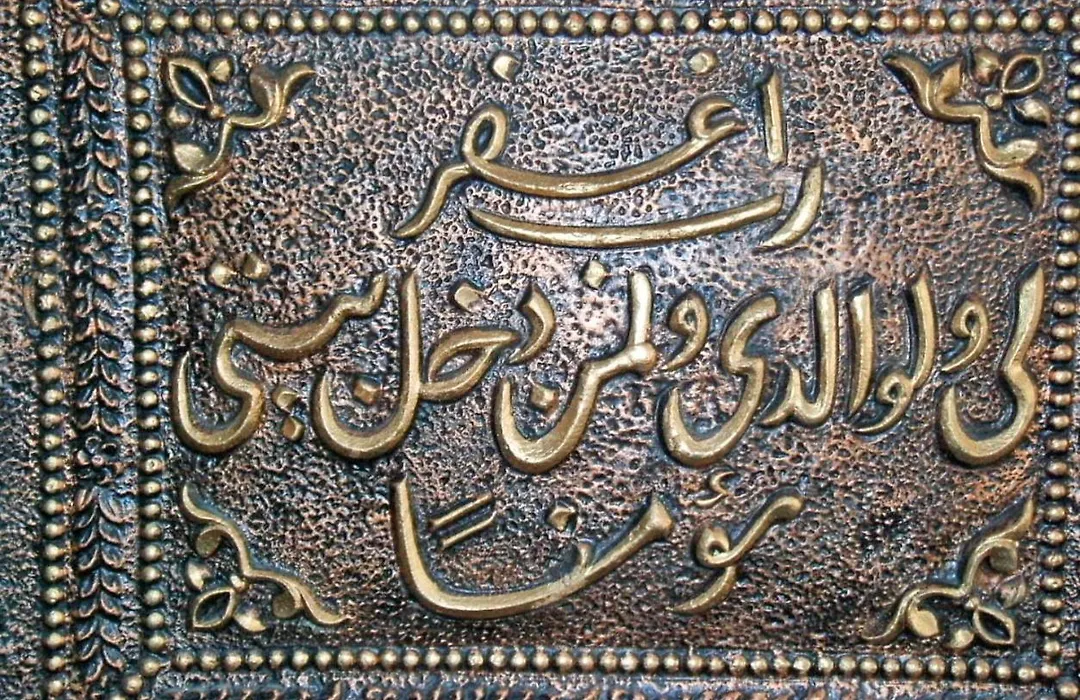 رب اغفر
لى ولوالدى ولمن دخل بيتى
مؤمنًا